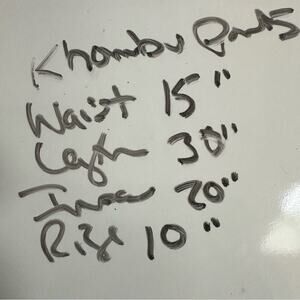 Khombu Pants
Waist 15"
Length 30"
Inseam 20"
Rise 10"